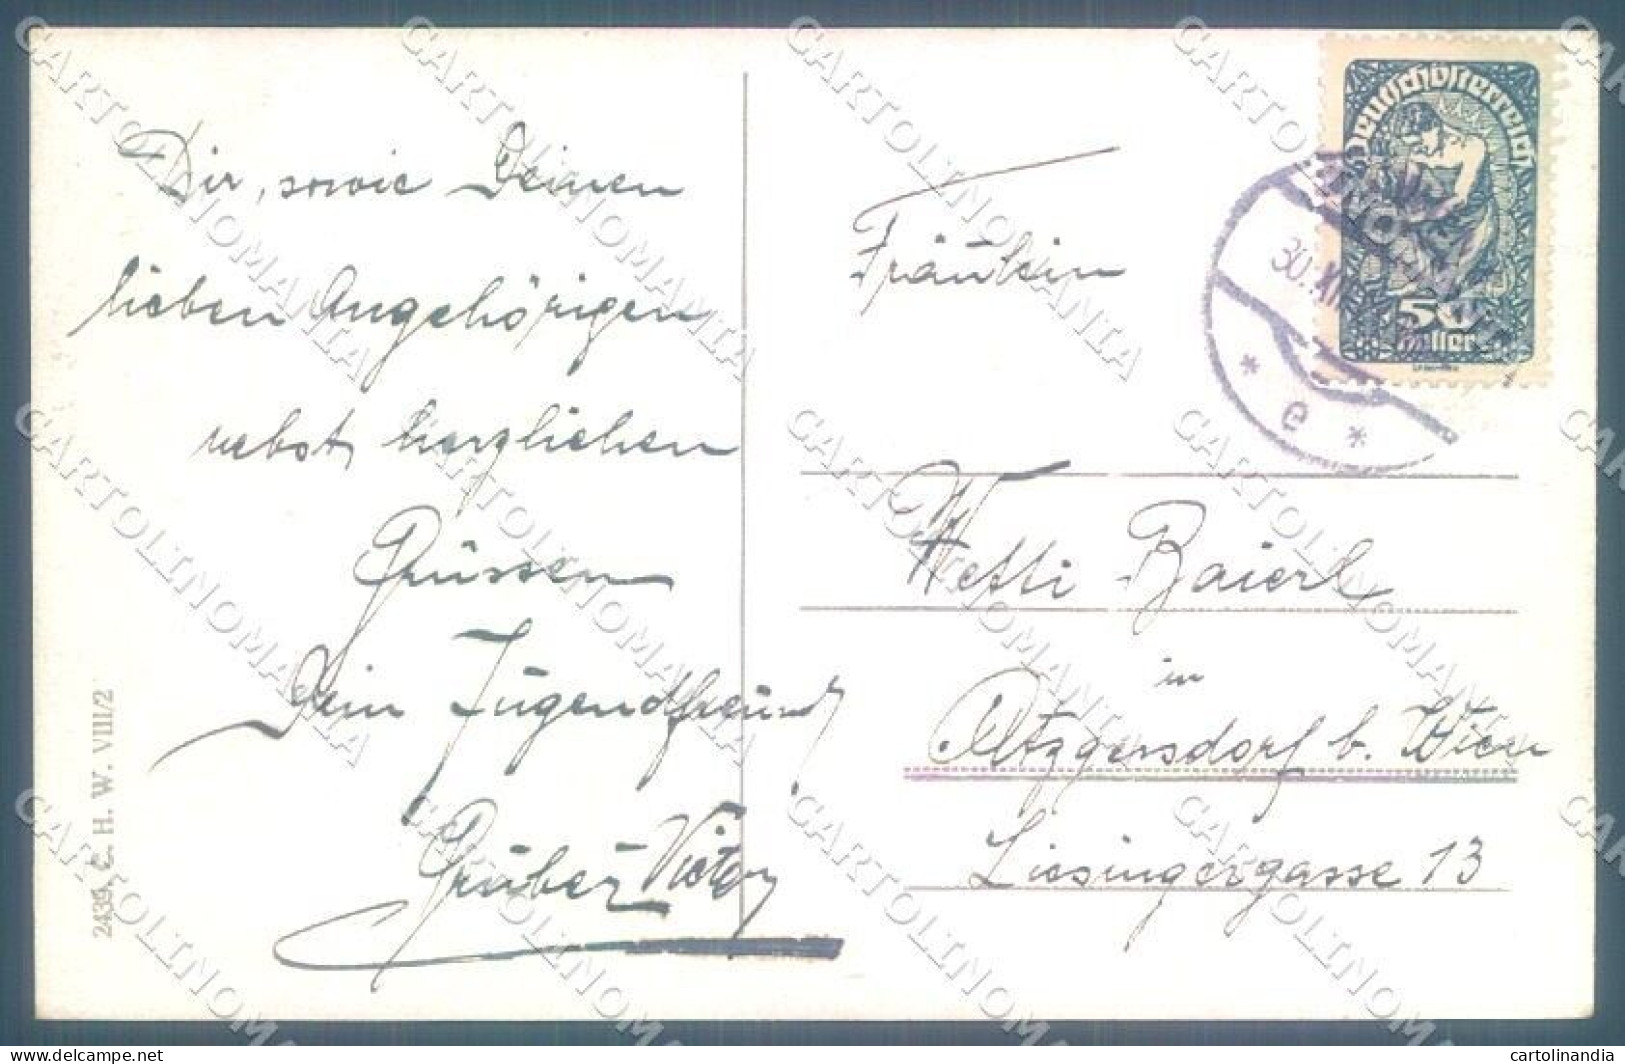 Dir, sowie Deinen
lieben Angehörigen
nebst herzlichen
Grüssen
Dein Jugendfreund
Gruber Victor
2439, C. H. W. VIII/2
Deutschösterreich
50
Heller
30. XII
* e *
Fräulein
Netti Baierl
in
Atzgersdorf b. Wien
Liesingergasse 13
CARTOLINOMANIA
www.delcampe.net
cartolinandia